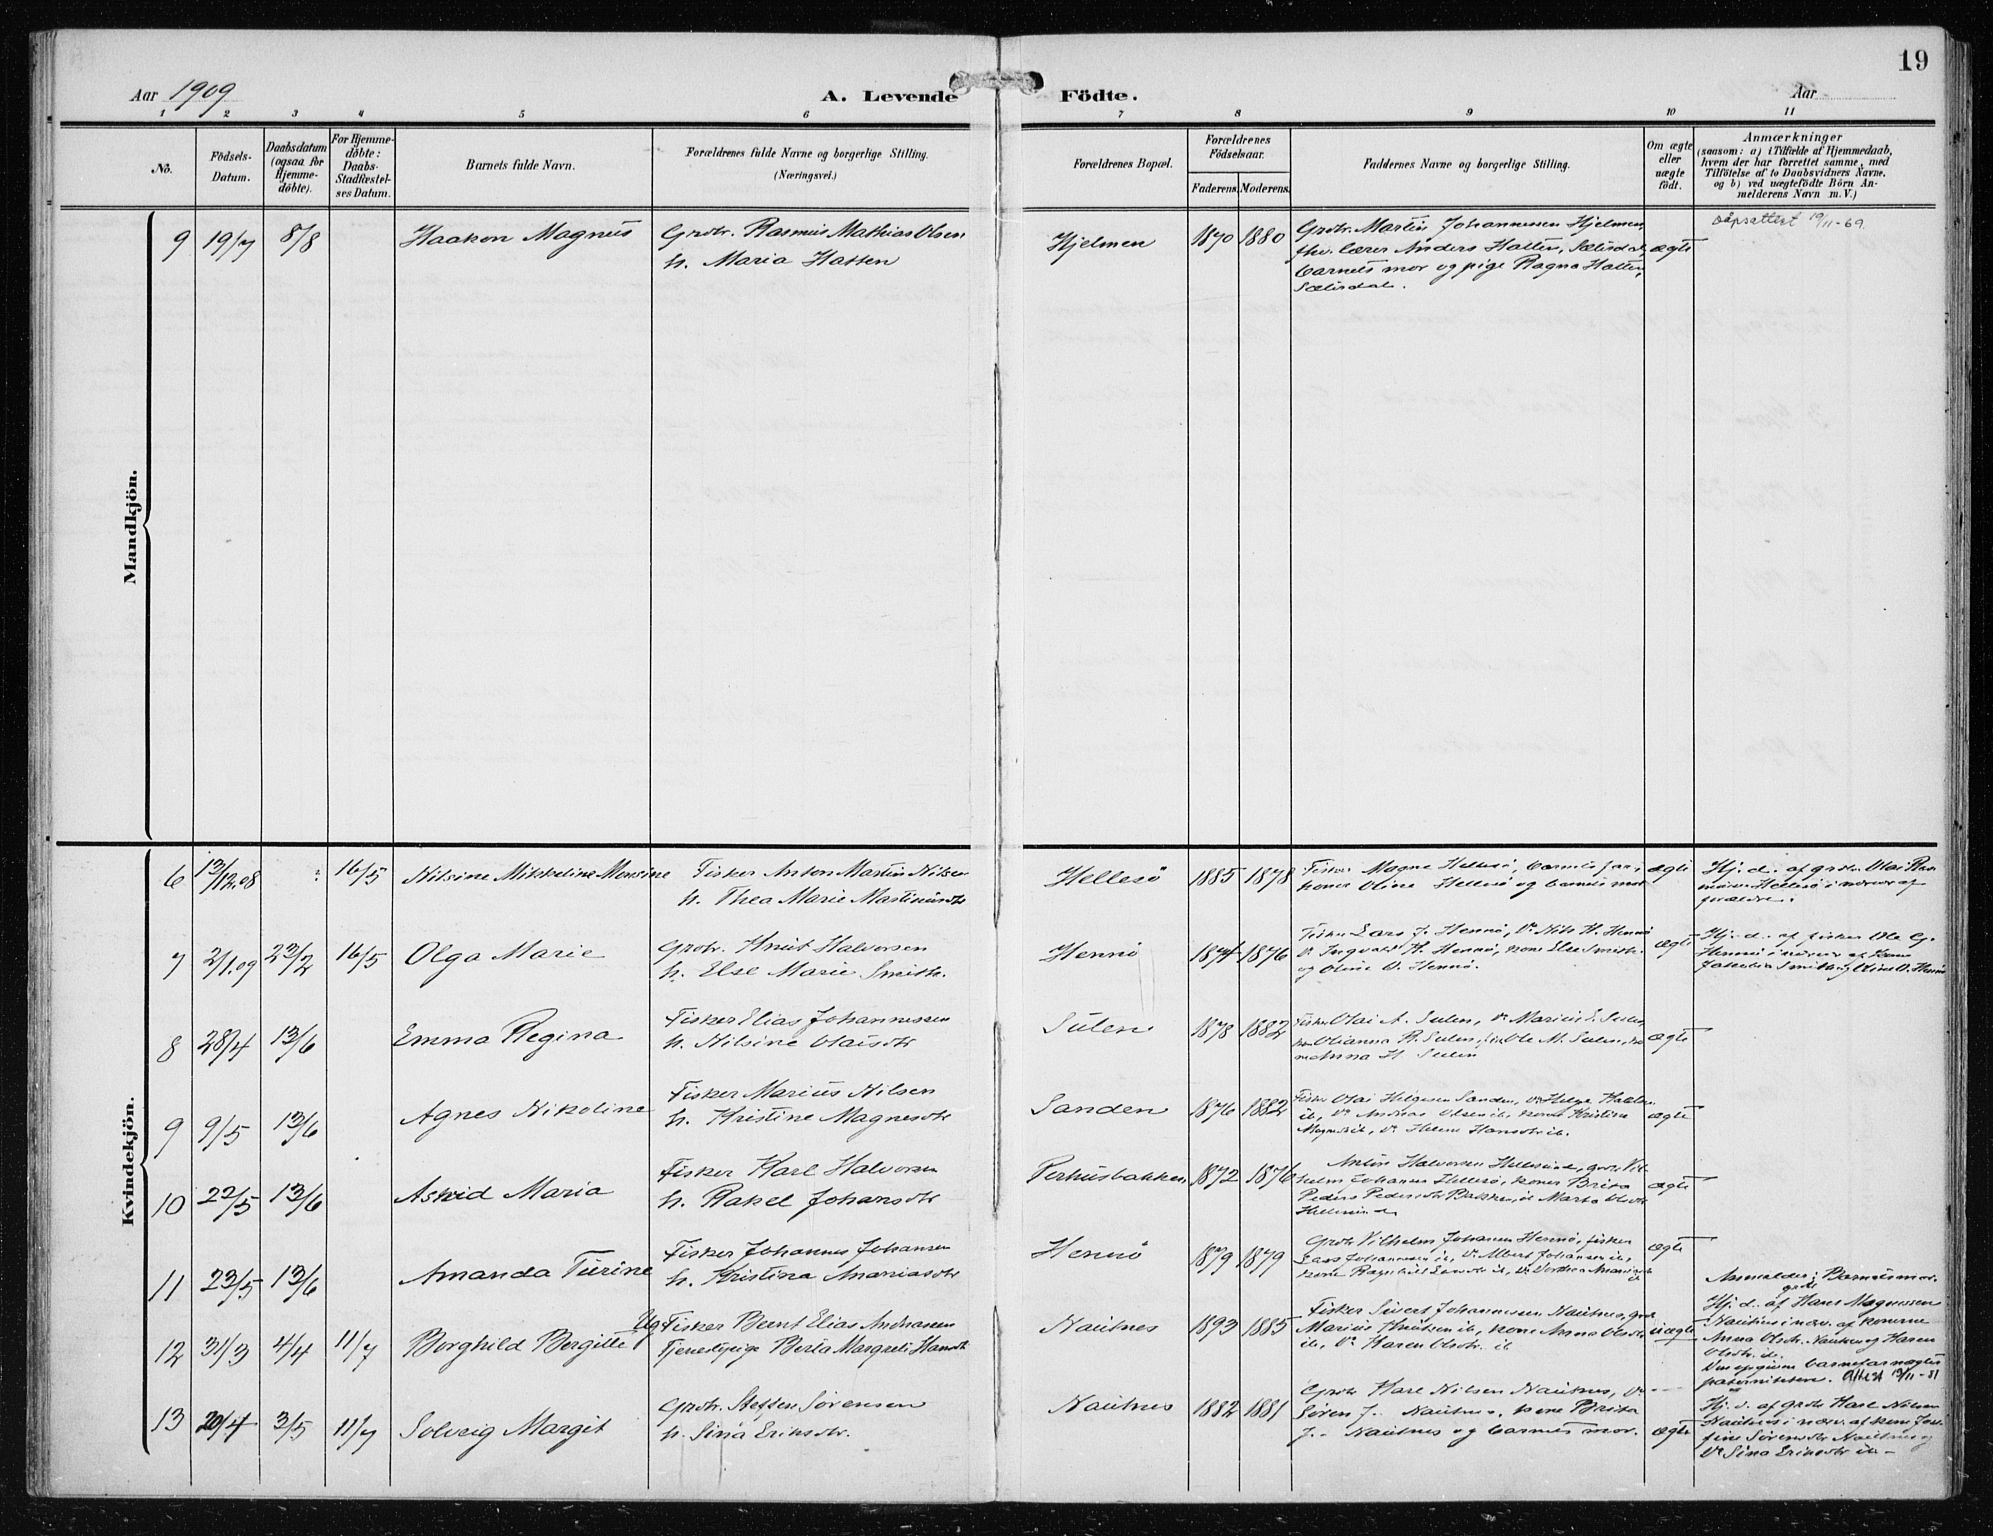 19
Aar 1909
A. Levende Födte.
Aar
1 2 3 4 5 6 7 8 9 10 11
No.
Födsels-
Datum.
Daabsdatum
(ogsaa for
Hjemme-
döbte).
For Hjemme-
döbte:
Daabs-
Stadfæstel-
ses Datum.
Barnets fulde Navn.
Forældrenes fulde Navne og borgerlige Stilling.
(Næringsvei.)
Forældrenes Bopæl.
Forældrenes
Födselsaar.
Faderens. Moderens.
Faddernes Navne og borgerlige Stilling.
Om ægte
eller
uægte
født.
Anmærkninger
(saasom: a) i Tilfælde af Hjemmedaab,
hvem der har forrettet samme, med
Tilföielse af to Daabsvidners Navne,
og b) ved uægtefödte Börn An-
melderens Navn m. V.)
Mandkjön.
9 19/7 8/8 Haakon Magnus
Grbr. Rasmus Mathias Olsen
h. Maria Hatten
Hjelmen 1870 1880
Grbr. Martin Johannessen Hjelmen,
fhv. lærer Anders Hatten, Sælisdal,
barnets mor og pige Ragna Hatten,
Sælisdal.
ægte
Dåpsattest 19/11-69
Kvindekjön.
6 13/12.08 16/5 Nilsine Mikkeline Monsine
Fisker Anton Martin Nilsen
h. Thea Marie Martinusdtr
Hellesö 1885 1878
Fisker Magne Hellesö, barnets far,
koner Oline Hellesö og barnets mor
ægte
Hj. d. af grbr. Olai Ras-
mussen Hellesö i nærvær af
forældre.
7 2/1.09 23/2 16/5 Olga Marie
Grbr. Knut Halvorsen
h. Else Marie Smith.
Hennö 1874 1876
Fisker Lars J. Hennö, Do Nils H. Hennö
Do Ingvald H. Hennö, kone Else Smith
og Oline O. Hennö.
ægte
Hj. d. af fisker Ole G.
Hennö i nærvær af kone
8 28/4 13/6 Emma Regina
Fisker Elias Johannessen
h. Nilsine Olaisdtr
Sulen 1878 1882
Fisker Olai A. Sulen, Do Marius E. Sulen,
Olianna R. Sulen, Ole M. Sulen,
Anna H Sulen
ægte
9 9/5 13/6 Agnes Nikoline
Fisker Marius Nilsen
h. Kristine Magnesdtr
Sanden 1876 1882
Fisker Olai Helgesen Sanden, Do Helge
ib, Do Andreas Olsen ib, kone Kristine
ib, Do Helene Hansdtr ib.
ægte
10 22/5 13/6 Astrid Maria
Fisker Karl Halvorsen
h. Rakel Johansdtr
Perhusbakken 1872 1876
Anton Halvorsen Hellesund, grbr. Vil-
helm Johansen Hellesö, koner Brita
Pedersdtr Bakken, Marta Olsdtr
ægte
11 23/5 13/6 Amanda Turine
Fisker Johannes Johansen
h. Kristina Ananiasdtr
Hennö 1879 1879
Grbr Vilhelm Johansen Hennö, fisker
Lars Johannesen ib, Do Albert Johansen ib,
kone Ragnhild
ægte
12 31/3 4/4 11/7 Borghild Bergitte
Ug. Fisker Bernt Elias Andreassen
Tjenestepige Berta Margreta Hansdtr
Nautnes 1893 1885
Fisker Sivert Johannessen Nautnes, grbr
Marius Knutsen ib, kone Anna Olsdtr
ib, Do Karen Olsdtr ib
uægte
Anmelder: Barnets mor.
Hj. d. af grbr Hans Magnussen
Nautnes i nærv. af konerne
Anna Olsdtr. Nautnes og Karen
Olsdtr. ib.
Den opgivne barnefar nægter
paterniteten. Attest 13/11-81
13 20/4 3/5 11/7 Solveig Margit
Grbr. Steffen Sörensen
h. Sina Eriksdtr.
Nautnes 1882 1881
Grbr Karl Nilsen Nautnes, Do
Sören J. Nautnes, kone Brita
J. Nautnes og barnets mor.
ægte
Hj. d. af grbr Karl Nilsen
Nautnes i nærv. af kone Jose-
fine Sörensdtr Nautnes og
Do Sina Eriksdtr ib